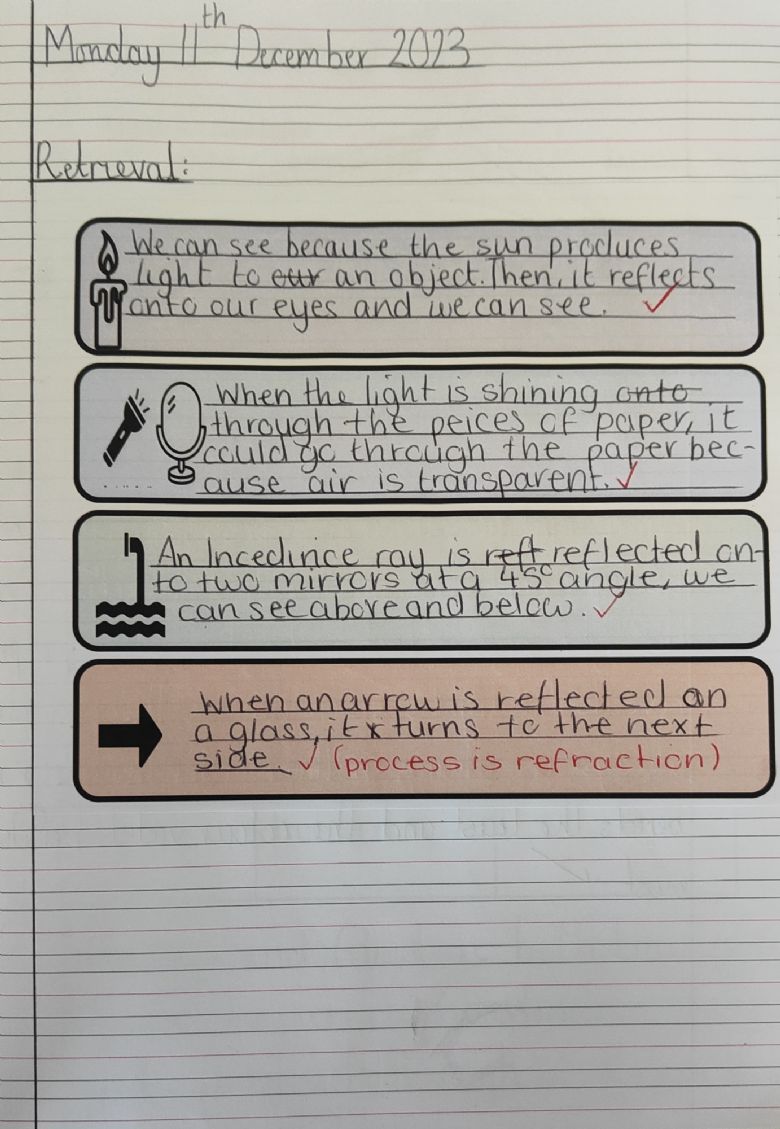 Monday 11th December 2023
Retrieval:
We can see because the sun produces
light to our an object. Then, it reflects
onto our eyes and we can see. ✓
When the light is shining onto
through the peices of paper, it
could go through the paper bec-
ause air is transparent. ✓
An Incedince ray is reft reflected on-
to two mirrors at a 45° angle, we
can see above and below. ✓
When an arrow is reflected on
a glass, it x turns to the next
side. ✓ (process is refraction)